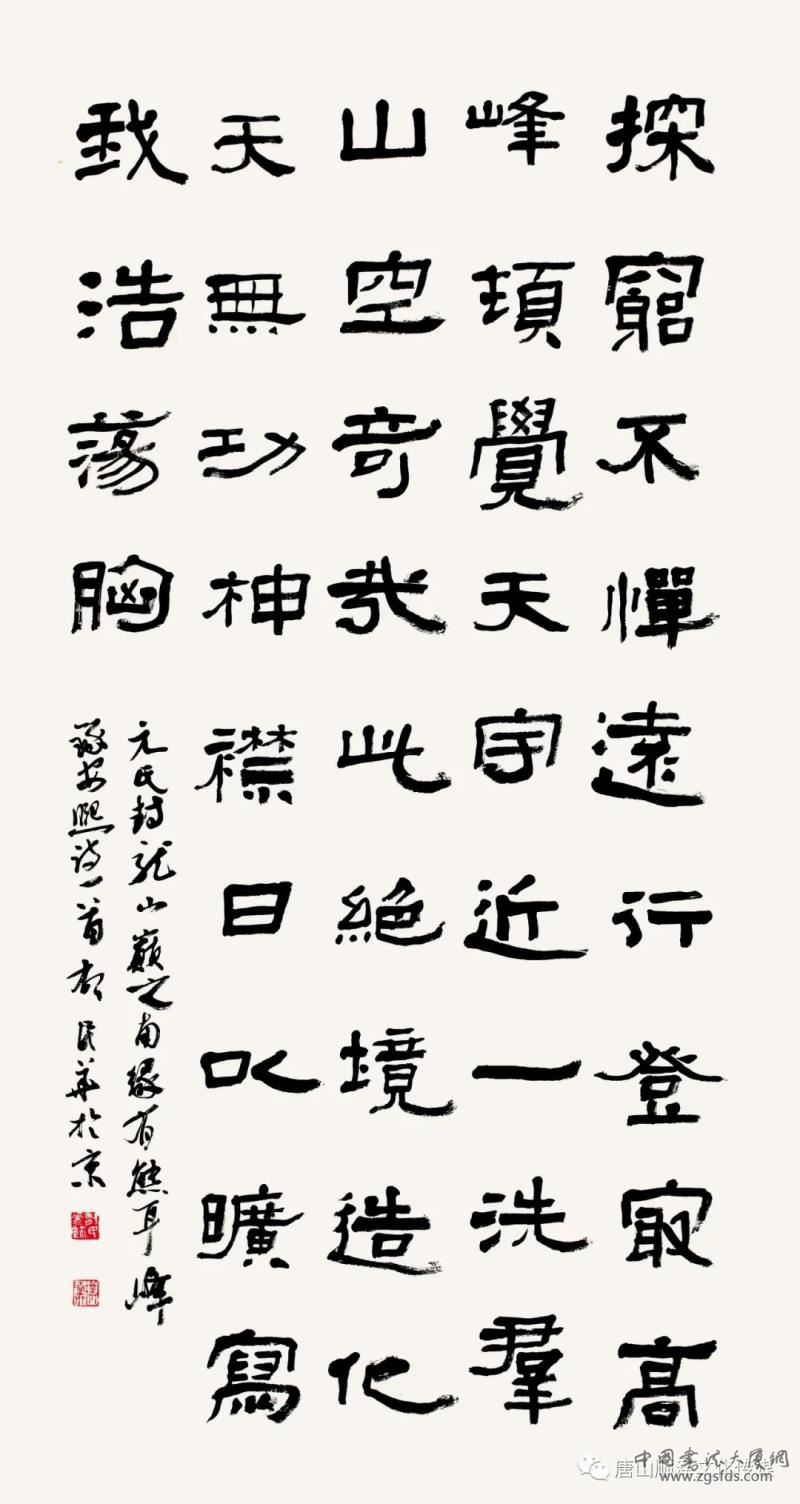 探窮不憚遠行登冣高
峰頂覺天宇近一洗羣
山空奇哉此絕境造化
天無功神襟日以曠寫
我浩蕩胸
元氏封龍山巔之南緣有熊耳峰
安熙诗一首 民華於京
唐山文化传媒
中國書法大廈網
www.zgsfds.com